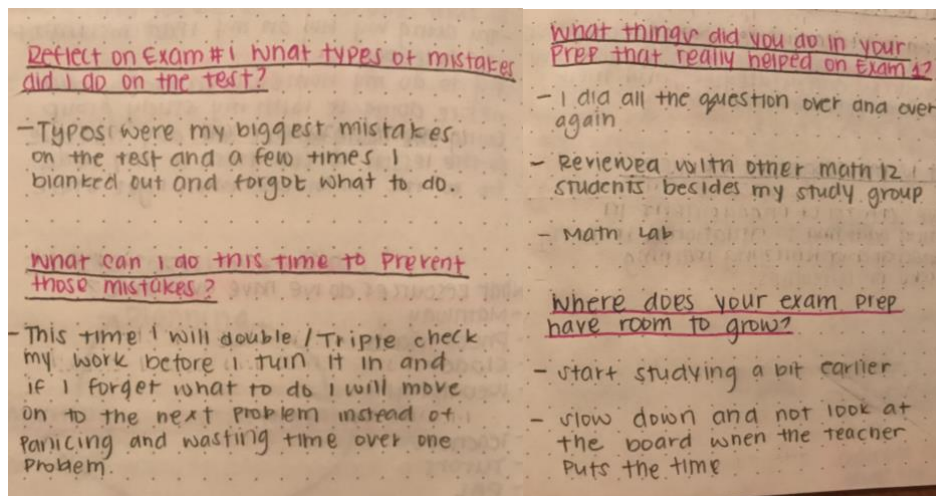 Reflect on Exam #1 What types of mistakes
did I do on the test?
- Typos were my biggest mistakes
on the test and a few times I
blanked out and forgot what to do.
What can I do this time to prevent
those mistakes?
- This time I will double/Triple check
my work before I turn it in and
if I forget what to do I will move
on to the next problem instead of
panicing and wasting time over one
problem.
What things did you do in your
Prep that really helped on Exam 1?
- I did all the question over and over
again
- Reviewed with other math 12
students besides my study group
- Math Lab
Where does your exam prep
have room to grow?
- start studying a bit earlier
- slow down and not look at
the board when the teacher
puts the time